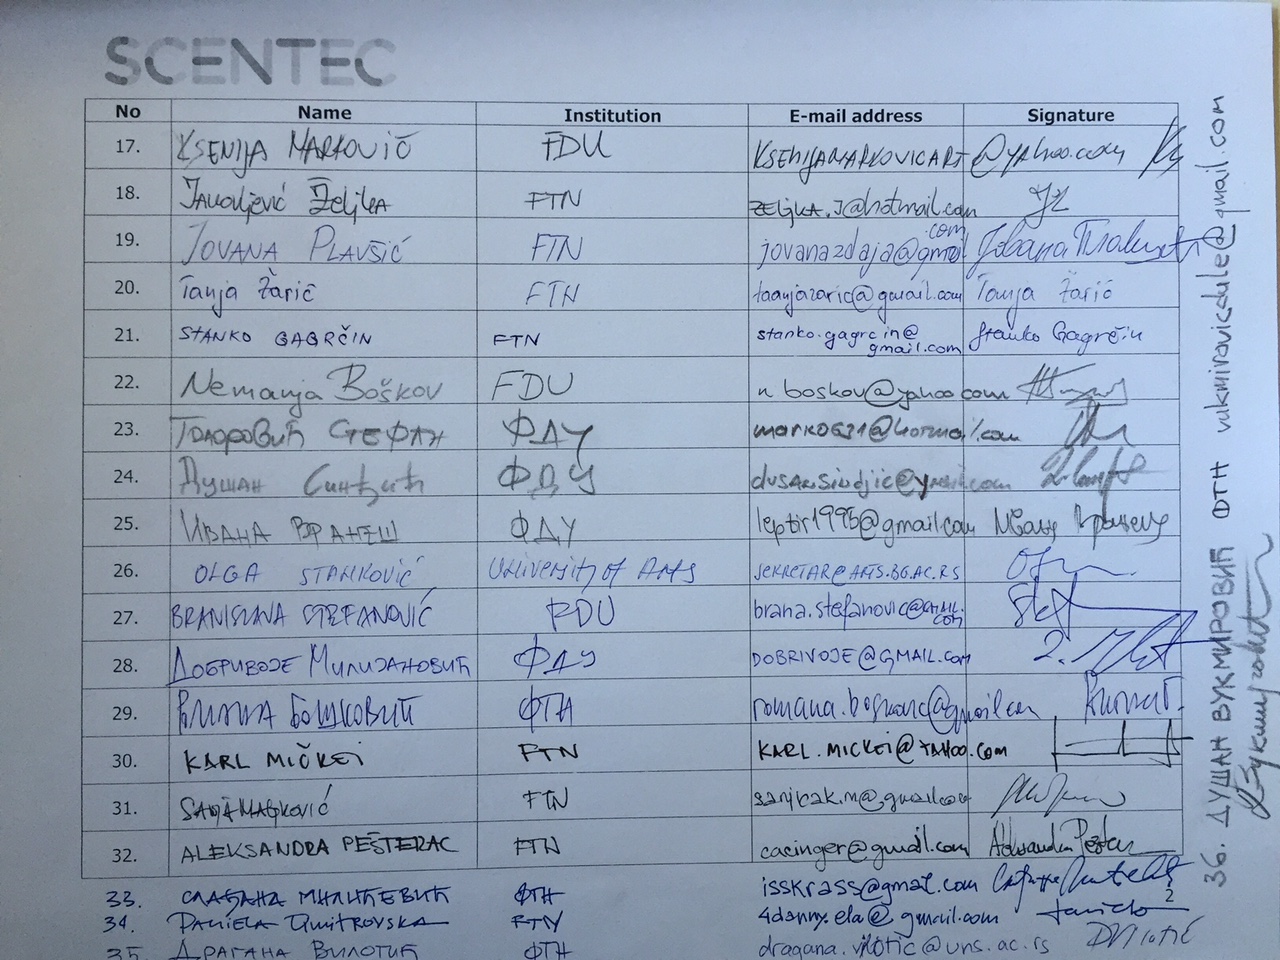 SCENTEC
No Name Institution E-mail address Signature
17. KSENIJA MARKOVIĆ FDU KSENIJAMARKOVICART@yahoo.com
18. Jakovljević Željka FTN ZELJKA.J@hotmail.com
19. JOVANA PLAVŠIĆ FTN jovanazdaja@gmail.com
20. Tanja Žarić FTN taanjazaric@gmail.com Tanja Žarić
21. STANKO GAGRČIN FTN stanko.gagrcin@gmail.com Stanko Gagrčin
22. Nemanja Boškov FDU n boskov@yahoo com
23. Тодоровић СТЕФАН ФДУ marko631@hotmail.com
24. Душан Синђић ФДУ dusansindjic@
25. ИВАНА ВРАНЕШ ФДУ leptir1995@gmail.com
26. OLGA STANKOVIĆ University of Arts SEKRETAR@ARTS.BG.AC.RS
27. BRANISLAVA STEFANOVIĆ FDU brana.stefanovic@GMAIL.COM
28. ДОБРИВОЈЕ МИЛИЈАНОВИЋ ФДУ DOBRIVOJE@GMAIL.COM
29. БОШКОВИЋ ФТН
30. KARL MIČKEI FTN KARL.MICKEI@YAHOO.COM
31. FTN
32. ALEKSANDRA PEŠTERAC FTN cacinger@gmail.com
33. СЛАЂАНА МИЛИЋЕВИЋ ФТН isskrass@gmail.com
2
34. DANIELA DIMITROVSKA FTN 4danny.ela@gmail.com
35. ДРАГАНА ВИЛОТИЋ ФТН dragana.vilotic@uns.ac.rs
36. ДУШАН ВУКМИРОВИЋ ФТН vukmirovicdule@gmail.com